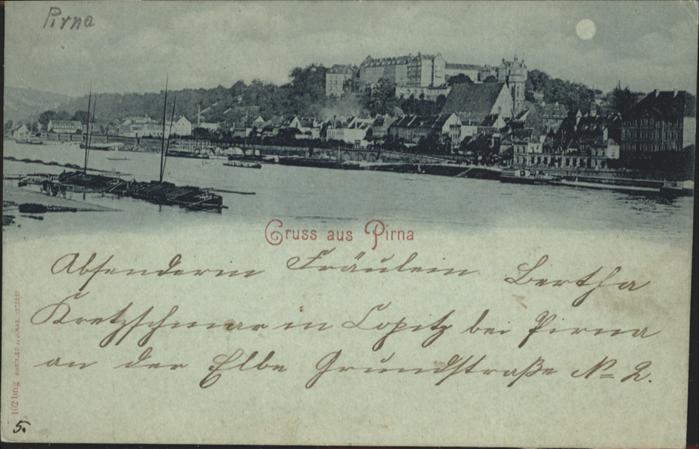 Pirna
Gruss aus Pirna
Absenderin Fräulein Bertha
Kretzschmar in Copitz bei Pirna
an der Elbe Grundstraße No 2.
102 
5.